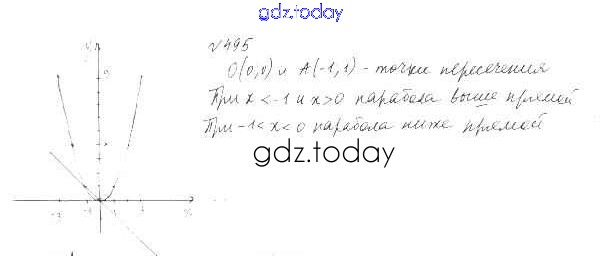 gdz.today
№495
O(0,0) и A(-1,1) - точки пересечения
При x < -1 и x > 0 парабола выше прямой
При -1 < x < 0 парабола ниже прямой
gdz.today